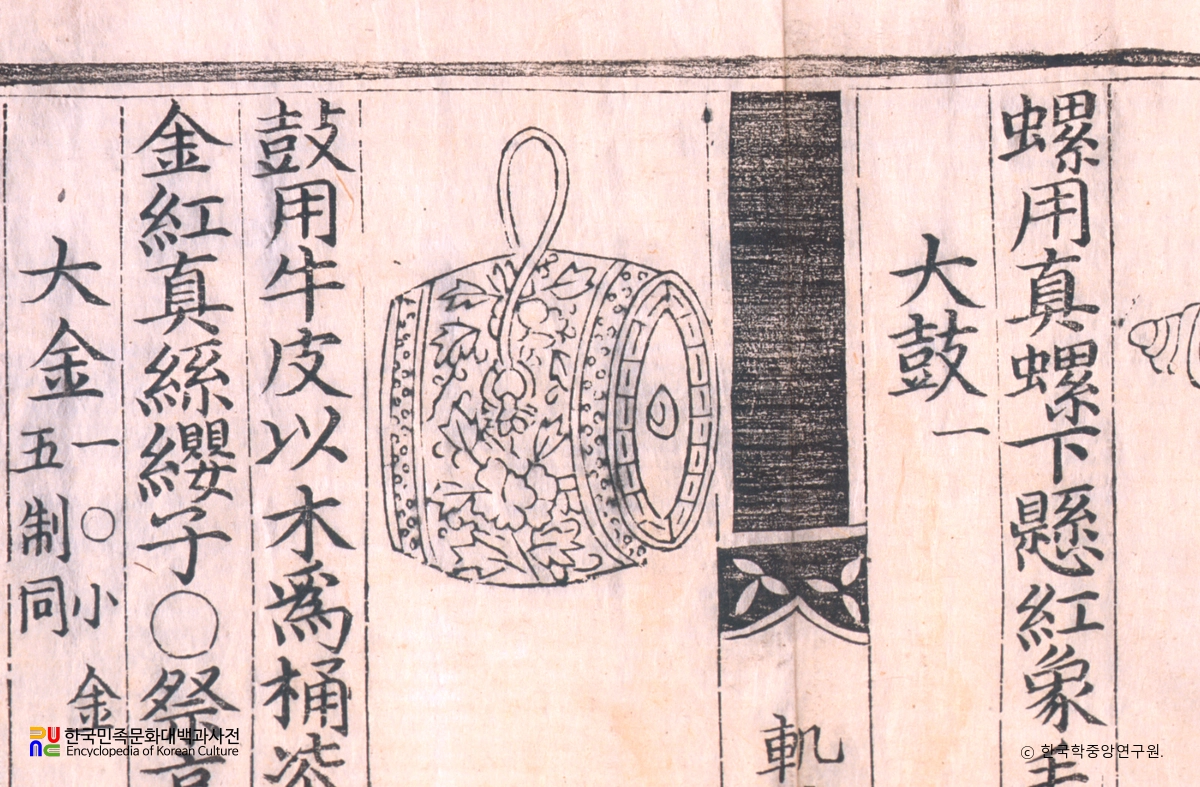 螺用真螺下懸紅象
大鼓一
軌
鼓用牛皮以木爲桶
金紅真絲纓子○祭
大金
一○小金
五制同
한국민족문화대백과사전
Encyclopedia of Korean Culture
ⓒ 한국학중앙연구원.